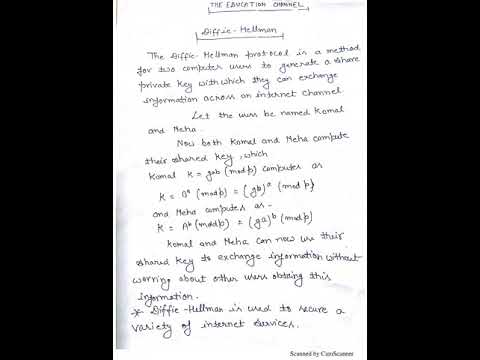 THE EDUCATION CHANNEL
Diffie-Hellman
The Diffie-Hellman protocol is a method
for two computer users to generate a share
private key with which they can exchange
information across an internet channel
Let the users be named Komal
and Meha.
Now both Komal and Meha compute
their shared key, which
Komal K = gab (mod p) computes as
K = Bᵃ (mod p) = (gb)ᵃ (mod p)
and Meha computes as -
K = Aᵇ (mod p) = (ga)ᵇ (mod p)
Komal and Meha can now use their
shared key to exchange information without
worrying about other users obtaing this
information.
* Diffie-Hellman is used to secure a
variety of internet services.
Scanned by CamScanner